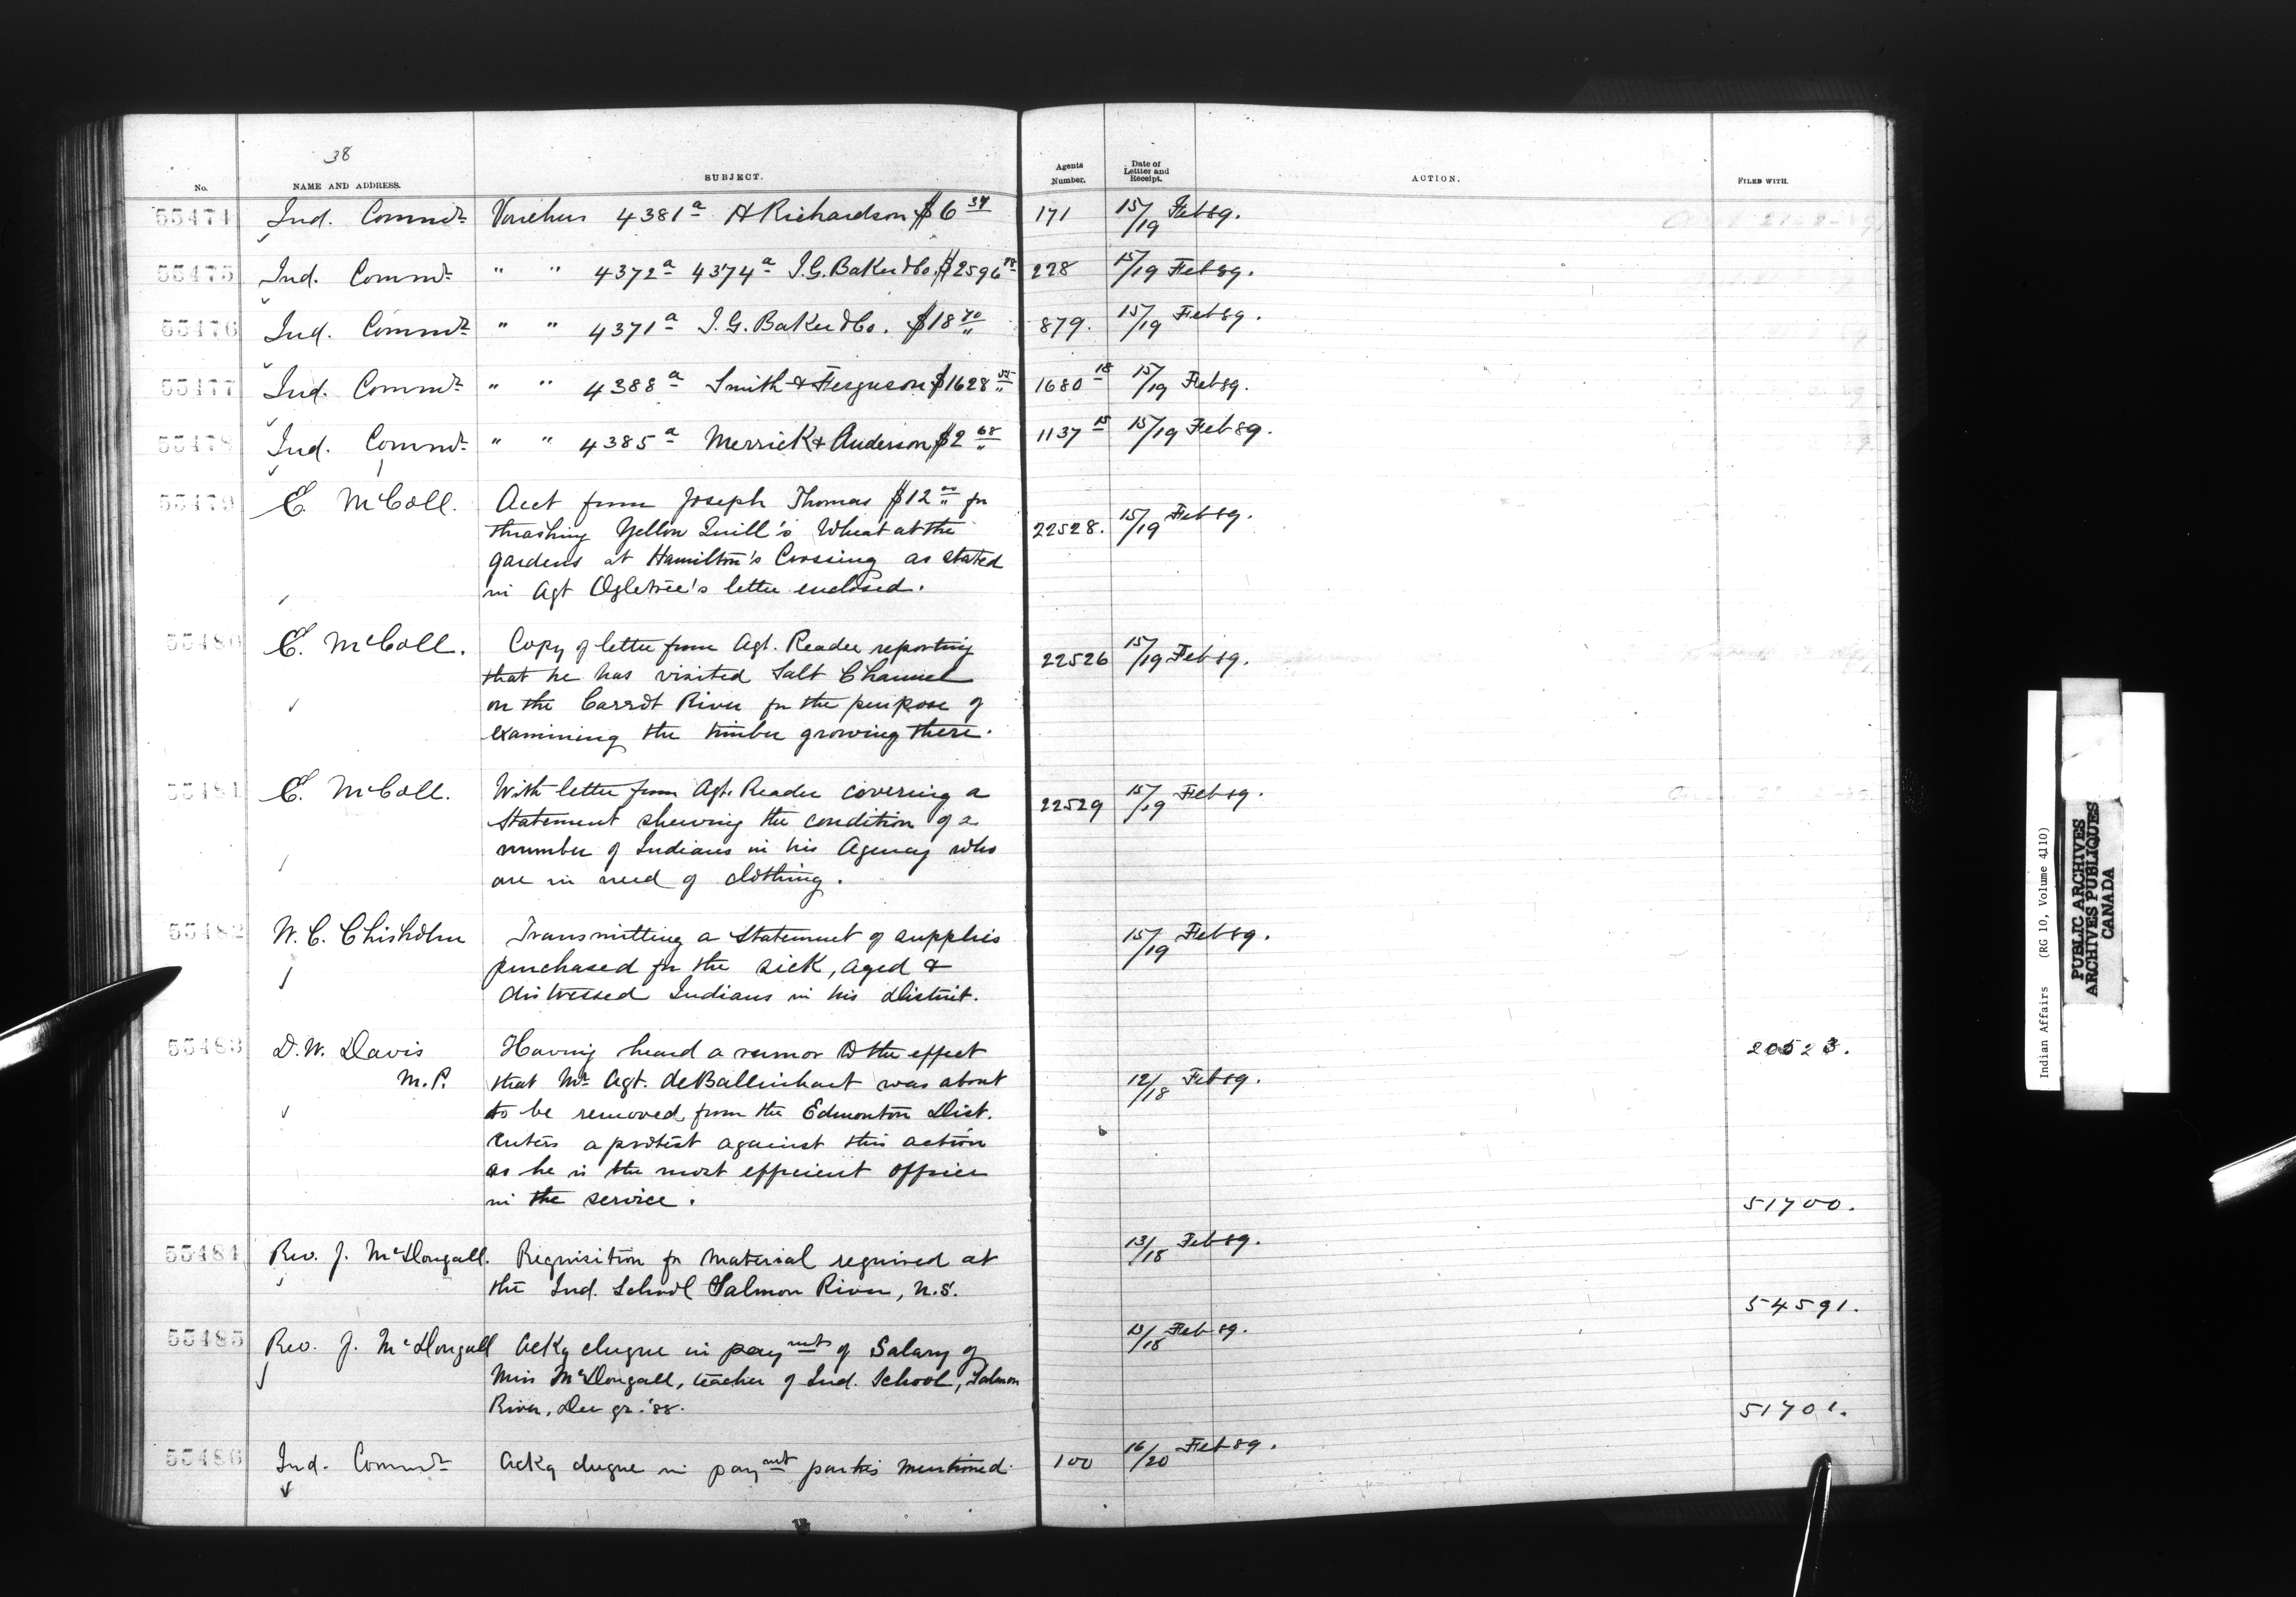 38
No. NAME AND ADDRESS. SUBJECT. Agents Number. Date of Letter and Receipt. ACTION. FILED WITH.
55474 Ind. Commr Vouchers 4381a H Richardson $6 171 15/19 Feb 89.
55475 Ind. Commr " " 4372a 4374a I.G. Baker & Co. $2596 228 15/19 Feb 89.
55476 Ind. Commr " " 4371a I.G. Baker & Co. $18 70 879. 15/19 Feb 89.
55477 Ind. Commr " " 4388a Smith & Ferguson $1628 1680 18 15/19 Feb 89.
55478 Ind. Commr " " 4385a Merrick & Anderson $2 68 1137 15 15/19 Feb 89.
55479 E. McColl. Acct from Joseph Thomas $12 00 for
thrashing Yellow Quill's Wheat at the 22528. 15/19 Feb 89.
gardens at Hamilton's Crossing as stated
in Agt Ogletree's letter enclosed.
55480 E. McColl. Copy of letter from Agt. Reader reporting
that he has visited Salt Channel 22526 15/19 Feb 89.
on the Carrot River for the purpose of
examining the timber growing there.
55481 E. McColl. With letter from Agt. Reader covering a
statement shewing the condition of a 22529 15/19 Feb 89.
number of Indians in his Agency who
are in need of clothing.
55482 W. C. Chisholm Transmitting a Statement of supplies 15/19 Feb 89.
purchased for the sick, aged &
distressed Indians in his District.
55483 D. W. Davis Having heard a rumor to the effect 20523.
M.P. that Mr Agt. de Ballinhart was about 12/18 Feb 89.
to be removed from the Edmonton Dist.
enters a protest against this action
as he is the most efficient officer
in the service. 51700.
55484 Rev. J. McDougall. Requisition for material required at 13/18 Feb 89.
the Ind. School Salmon River, N.S. 54591.
55485 Rev. J. McDougall Ackg chque in paymt of Salary of 13/18 Feb 89.
Miss McDougall, teacher of Ind. School, Salmon
River, Dec qr. '88. 51701.
55486 Ind. Commr Ackg chque in paymt parties mentioned. 100 16/20 Feb 89.
Indian Affairs (RG 10, Volume 4110)
PUBLIC ARCHIVES
ARCHIVES PUBLIQUES
CANADA